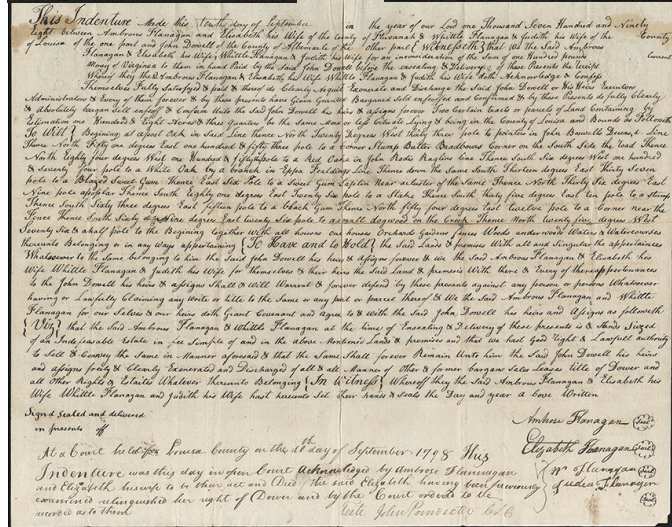 This Indenture Made this Tenth day of September in the year of our Lord one Thousand Seven Hundred and Ninety
Eight between Ambrous Flanagan and Elizabeth his Wife of the County of Fluvanah & Whittle Flanagan & Judith his Wife of the County
of Louisa of the one part and John Dowell of the County of Albemarle of the other part {Witnesseth} that we the Said Ambrous
Flanagan & Elisabeth his Wife Whittle Flanagan & Judith his Wife for an in consideration of the Sum of one Hundred pounds current
Money of Virginea to them in hand paid by the Said John Dowell before the ensealing & Delivery of these Presents the receipt
Whereof they the Ambrous Flanagan & Elisabeth his Wife Whittle Flanagan & Judith his Wife doth Acknowledge & Confess
Themselves Fully Satisfyed & paid & thereof do Clearly Acquit Exonerate and Discharge the Said John Dowell or his Heirs Executors
Administrators & Every of them forever & by these presents have Given Granted Bargened Sold enfeoffed and Confirmed & by these Presents do fully Clearly
& absolutely bargan Sell enfeoff & Confirm unto the Said John Dowell his heirs & assigns forever Two Certain tracts or Parcels of Land Containing by
Estimation one Hundred & Eight Acres & Three Quarters be the Same more or less Cituate Lying & being in the County of Louisa and Bounds as Followeth
To Will} Begining at a post Oak in Said Line thence North Twenty Degrees West thirty three pole to pointers in John Dowells Line
Thence North Fifty one degrees East one hundred & fifty three pole to a Corner Stump Butler Bradbows Corner on the South Side the road Thence
North Eighty four degrees West one Hundred & fifty pole to a Red Oak in John Rodes Line Thence South Six degrees West one hundred
& Seventy Four pole to a White Oak by a branch in Line Thence down the Same South Thirteen degrees East Thirty Seven
pole to a Sweet Gum Thence East Six Pole to a Sweet Gum Saplin Near a cluster of the Same Thence North Thirty Six degrees East
Nine pole a poplar Thence South Eighty one degrees East Twenty Six pole to a Stake Thence South thirty five degrees East ten pole to a Stump
Thence South Sixty three degrees East fifteen pole to a Gum Thence North fifty four degrees East twelve pole to a Corner near the
Fence Thence South Sixty Nine degrees East twenty Six pole to a small dogwood on the Creek Thence North twenty five degrees West
Seventy Six & a half pole to the Begining together with all houses out houses Orchards Gardens fences Woods underwood Waters & Watercourses
thereunto Belonging or in any Ways appertaining {To Have and to Hold} the Said Lands & premises With all and Singular the appertainances
Whatsoever to the Same belonging to him the Said John Dowell his heirs & assigns forever & we the Said Ambrous Flanagan & Elisabeth his
Wife Whittle Flanagan & Judith his Wife for themselves & their heirs the Said Land & premises With there & Every of their appertenances
to the John Dowell his heirs & assigns Shall & Will Warrant & forever defend by these presents against any person or persons Whatsoever
having or Lawfully Claiming any Write or title to the Same or any part or parcel thereof & We the Said Ambrous Flanagan and Whittle
Flanagan for our Selves & our heirs doth Grant Covenant and agree to & with the Said John Dowell his heirs and assigns as followeth
{Viz} that the Said Ambrous Flanagan & Whittle Flanagan at the time of Ensealing & Delivery of these presents is & Stands Seized
of an Indefeasable Estate in fee Simple of and in the above Mentioned Lands & premises and that we had Good Right & Lawfull authority
to Sell & Convey the Same in Manner aforesaid & that the Same Shall forever Remain Unto him the Said John Dowell his heirs
and assigns freely & Clearely Exonerated and Discharged of all & all Manner of Other & former bargans Sales Leases title of Dower and
all Other Rights & Estaites Whatever thereunto Belonging {In Witness} Whereoff they the Said Ambrous Flanagan & Elisabeth his
Wife Whittle Flanagan and Judith his Wife hast hereunto Set their hands & Seals the Day and year a bove Written
Signd sealed and delivered
in presents off
Ambrose Flanagan
Elizabeth Flanagan
W. Flanagan
Judea Flanagan
At a Court held for Louisa County on the 10th day of September 1798 This
Indenture was this day in open Court acknowledged by Ambrose Flannagan
and Elizabeth his wife to be their act and Deed the said Elizabeth having been previously
examined relinquished her right of Dower and by the Court ordered to be
recorded as to them
Teste John Poindexter C.L.C